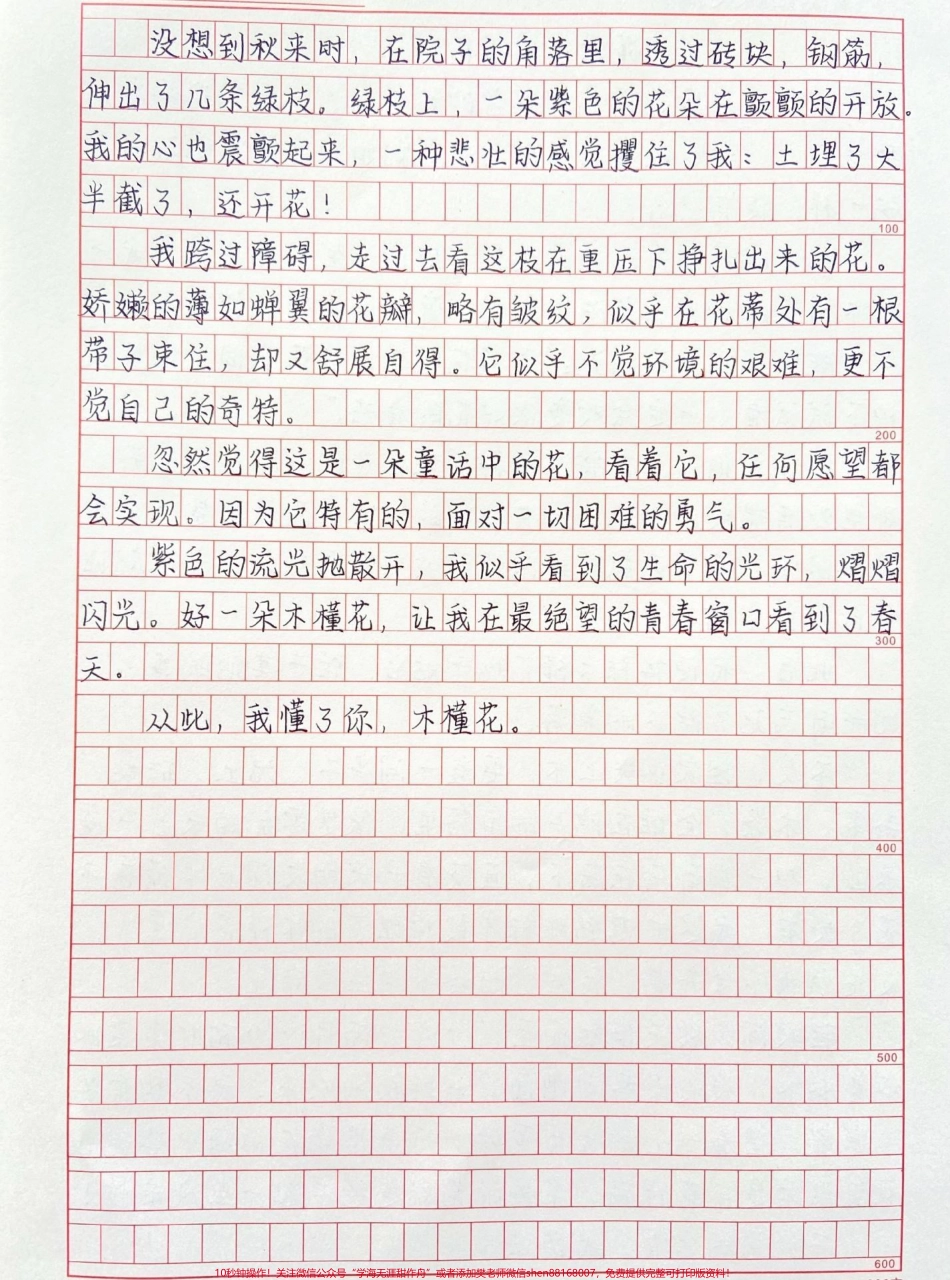 没想到秋来时，在院子的角落里，透过砖块，钢筋，
伸出了几条绿枝。绿枝上，一朵紫色的花朵在颤颤的开放。
我的心也震颤起来，一种悲壮的感觉攫住了我：土埋了大
半截了，还开花！
100
我跨过障碍，走过去看这枝在重压下挣扎出来的花。
娇嫩的薄如蝉翼的花瓣，略有皱纹，似乎在花蒂处有一根
带子束住，却又舒展自得。它似乎不觉环境的艰难，更不
觉自己的奇特。
200
忽然觉得这是一朵童话中的花，看着它，任何愿望都
会实现。因为它特有的，面对一切困难的勇气。
紫色的流光抛散开，我似乎看到了生命的光环，熠熠
闪光。好一朵木槿花，让我在最绝望的青春窗口看到了春
300
天。
从此，我懂了你，木槿花。
400
500
600
10秒钟操作！关注微信公众号“学海无涯甜作舟”或者添加樊老师微信shen88168007，免费提供完整可打印版资料！